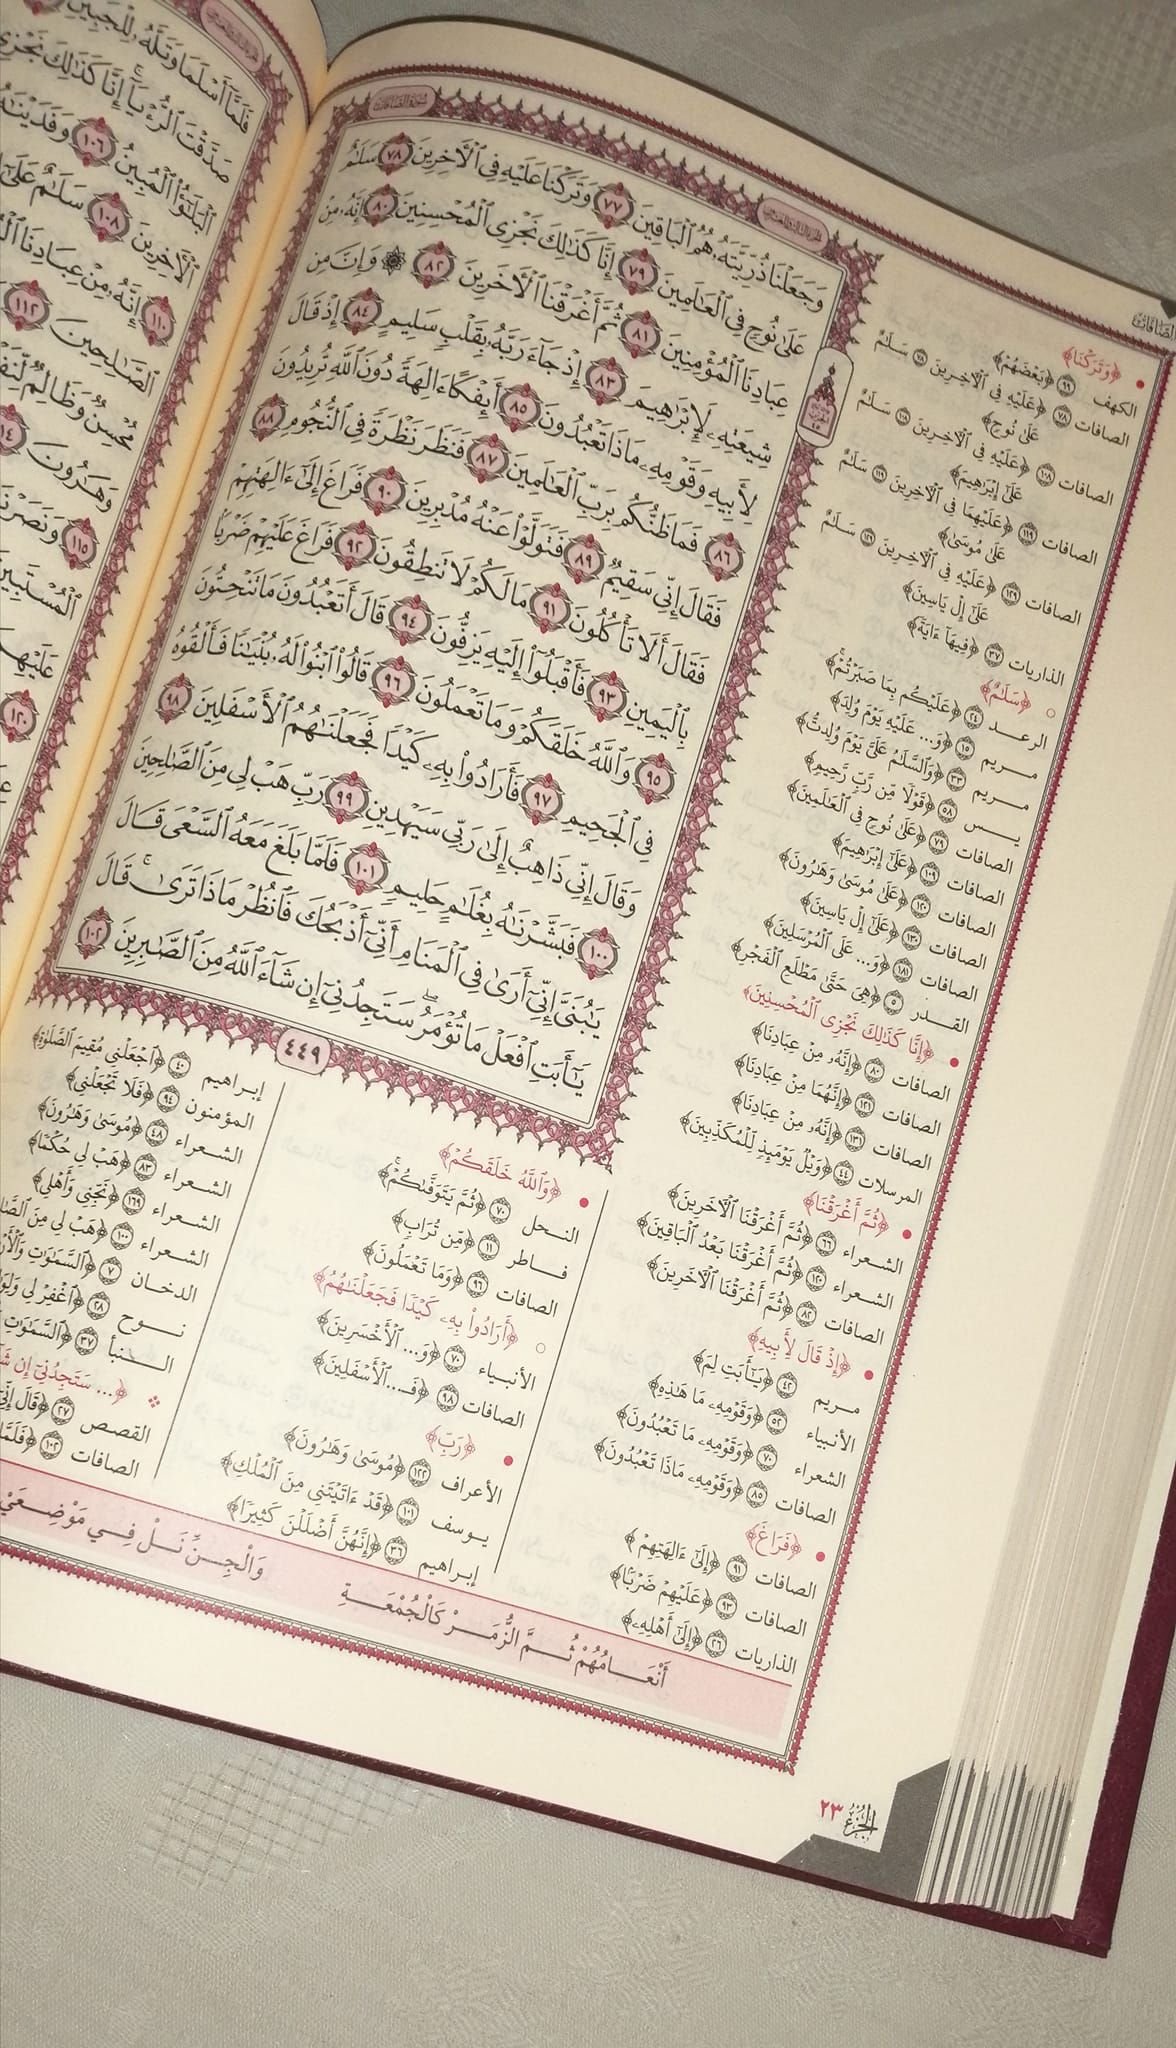 سُورَةُ الصَّافَّاتِ
وَجَعَلْنَا ذُرِّيَّتَهُۥ هُمُ ٱلْبَاقِينَ ٧٧ وَتَرَكْنَا عَلَيْهِ فِى ٱلْأَخِرِينَ ٧٨ سَلَٰمٌ
عَلَىٰ نُوحٍ فِى ٱلْعَٰلَمِينَ ٧٩ إِنَّا كَذَٰلِكَ نَجْزِى ٱلْمُحْسِنِينَ ٨٠ إِنَّهُۥ مِنْ
عِبَادِنَا ٱلْمُؤْمِنِينَ ٨١ ثُمَّ أَغْرَقْنَا ٱلْأَخَرِينَ ٨٢ ۞ وَإِنَّ مِن
شِيعَتِهِۦ لَإِبْرَٰهِيمَ ٨٣ إِذْ جَآءَ رَبَّهُۥ بِقَلْبٍ سَلِيمٍ ٨٤ إِذْ قَالَ
لِأَبِيهِ وَقَوْمِهِۦ مَاذَا تَعْبُدُونَ ٨٥ أَئِفْكًا ءَالِهَةً دُونَ ٱللَّهِ تُرِيدُونَ
٨٦ فَمَا ظَنُّكُم بِرَبِّ ٱلْعَٰلَمِينَ ٨٧ فَنَظَرَ نَظْرَةً فِى ٱلنُّجُومِ ٨٨
فَقَالَ إِنِّى سَقِيمٌ ٨٩ فَتَوَلَّوْا۟ عَنْهُ مُدْبِرِينَ ٩٠ فَرَاغَ إِلَىٰٓ ءَالِهَتِهِمْ
فَقَالَ أَلَا تَأْكُلُونَ ٩١ مَا لَكُمْ لَا تَنطِقُونَ ٩٢ فَرَاغَ عَلَيْهِمْ ضَرْبًۢا
بِٱلْيَمِينِ ٩٣ فَأَقْبَلُوٓا۟ إِلَيْهِ يَزِفُّونَ ٩٤ قَالَ أَتَعْبُدُونَ مَا تَنْحِتُونَ
٩٥ وَٱللَّهُ خَلَقَكُمْ وَمَا تَعْمَلُونَ ٩٦ قَالُوا۟ ٱبْنُوا۟ لَهُۥ بُنْيَٰنًا فَأَلْقُوهُ
فِى ٱلْجَحِيمِ ٩٧ فَأَرَادُوا۟ بِهِۦ كَيْدًا فَجَعَلْنَٰهُمُ ٱلْأَسْفَلِينَ ٩٨
وَقَالَ إِنِّى ذَاهِبٌ إِلَىٰ رَبِّى سَيَهْدِينِ ٩٩ رَبِّ هَبْ لِى مِنَ ٱلصَّٰلِحِينَ
١٠٠ فَبَشَّرْنَٰهُ بِغُلَٰمٍ حَلِيمٍ ١٠١ فَلَمَّا بَلَغَ مَعَهُ ٱلسَّعْىَ قَالَ
يَٰبُنَىَّ إِنِّىٓ أَرَىٰ فِى ٱلْمَنَامِ أَنِّىٓ أَذْبَحُكَ فَٱنظُرْ مَاذَا تَرَىٰ ۚ قَالَ
يَٰٓأَبَتِ ٱفْعَلْ مَا تُؤْمَرُ ۖ سَتَجِدُنِىٓ إِن شَآءَ ٱللَّهُ مِنَ ٱلصَّٰبِرِينَ ١٠٢
٤٤٩
﴿وَتَرَكْنَا﴾
الكهف ٩٩ ﴿بَعْضَهُمْ﴾
الصافات ٧٨ ﴿عَلَيْهِ فِى ٱلْأَخِرِينَ ٧٨ سَلَٰمٌ
عَلَىٰ نُوحٍ﴾
الصافات ١٠٨ ﴿عَلَيْهِ فِى ٱلْأَخِرِينَ ١٠٨ سَلَٰمٌ
عَلَىٰٓ إِبْرَٰهِيمَ﴾
الصافات ١١٩ ﴿عَلَيْهِمَا فِى ٱلْأَخِرِينَ ١١٩ سَلَٰمٌ
عَلَىٰ مُوسَىٰ﴾
الصافات ١٢٩ ﴿عَلَيْهِ فِى ٱلْأَخِرِينَ ١٢٩ سَلَٰمٌ
عَلَىٰٓ إِلْ يَاسِينَ﴾
الذاريات ٣٧ ﴿فِيهَآ ءَايَةً﴾
﴿سَلَٰمٌ﴾
الرعد ٢٤ ﴿عَلَيْكُم بِمَا صَبَرْتُمْ﴾
مريم ١٥ ﴿وَ... عَلَيْهِ يَوْمَ وُلِدَ﴾
مريم ٣٣ ﴿وَٱلسَّلَٰمُ عَلَىَّ يَوْمَ وُلِدتُّ﴾
يس ٥٨ ﴿قَوْلًا مِّن رَّبٍّ رَّحِيمٍ﴾
الصافات ٧٩ ﴿عَلَىٰ نُوحٍ فِى ٱلْعَٰلَمِينَ﴾
الصافات ١٠٩ ﴿عَلَىٰٓ إِبْرَٰهِيمَ﴾
الصافات ١٢٠ ﴿عَلَىٰ مُوسَىٰ وَهَٰرُونَ﴾
الصافات ١٣٠ ﴿عَلَىٰٓ إِلْ يَاسِينَ﴾
الصافات ١٨١ ﴿وَ... عَلَى ٱلْمُرْسَلِينَ﴾
القدر ٥ ﴿هِىَ حَتَّىٰ مَطْلَعِ ٱلْفَجْرِ﴾
﴿إِنَّا كَذَٰلِكَ نَجْزِى ٱلْمُحْسِنِينَ﴾
الصافات ٨٠ ﴿إِنَّهُۥ مِنْ عِبَادِنَا﴾
الصافات ١٢١ ﴿إِنَّهُمَا مِنْ عِبَادِنَا﴾
الصافات ١٣١ ﴿إِنَّهُۥ مِنْ عِبَادِنَا﴾
المرسلات ٤٤ ﴿وَيْلٌ يَوْمَئِذٍ لِّلْمُكَذِّبِينَ﴾
﴿ثُمَّ أَغْرَقْنَا﴾
الشعراء ٦٦ ﴿ثُمَّ أَغْرَقْنَا ٱلْأَخَرِينَ﴾
الشعراء ١٢٠ ﴿ثُمَّ أَغْرَقْنَا بَعْدُ ٱلْبَاقِينَ﴾
الصافات ٨٢ ﴿ثُمَّ أَغْرَقْنَا ٱلْأَخَرِينَ﴾
﴿إِذْ قَالَ لِأَبِيهِ﴾
مريم ٤٢ ﴿يَٰٓأَبَتِ لِمَ﴾
الأنبياء ٥٢ ﴿وَقَوْمِهِۦ مَا هَٰذِهِ﴾
الشعراء ٧٠ ﴿وَقَوْمِهِۦ مَا تَعْبُدُونَ﴾
الصافات ٨٥ ﴿وَقَوْمِهِۦ مَاذَا تَعْبُدُونَ﴾
﴿فَرَاغَ﴾
الصافات ٩١ ﴿إِلَىٰٓ ءَالِهَتِهِمْ﴾
الصافات ٩٣ ﴿عَلَيْهِمْ ضَرْبًا﴾
الذاريات ٢٦ ﴿إِلَىٰٓ أَهْلِهِۦ﴾
﴿وَٱللَّهُ خَلَقَكُمْ﴾
النحل ٧٠ ﴿ثُمَّ يَتَوَفَّىٰكُمْ﴾
فاطر ١١ ﴿مِّن تُرَابٍ﴾
الصافات ٩٦ ﴿وَمَا تَعْمَلُونَ﴾
﴿أَرَادُوا۟ بِهِۦ كَيْدًا فَجَعَلْنَٰهُمُ﴾
الأنبياء ٧٠ ﴿وَ... ٱلْأَخْسَرِينَ﴾
الصافات ٩٨ ﴿فَـ... ٱلْأَسْفَلِينَ﴾
﴿رَبِّ﴾
الأعراف ١٢٢ ﴿مُوسَىٰ وَهَٰرُونَ﴾
يوسف ١٠١ ﴿قَدْ ءَاتَيْتَنِى مِنَ ٱلْمُلْكِ﴾
إبراهيم ٣٦ ﴿إِنَّهُنَّ أَضْلَلْنَ كَثِيرًا﴾
إبراهيم ٤٠ ﴿ٱجْعَلْنِى مُقِيمَ ٱلصَّلَوٰةِ﴾
المؤمنون ٩٤ ﴿فَلَا تَجْعَلْنِى﴾
الشعراء ٤٨ ﴿مُوسَىٰ وَهَٰرُونَ﴾
الشعراء ٨٣ ﴿هَبْ لِى حُكْمًا﴾
الشعراء ١٦٩ ﴿نَجِّنِى وَأَهْلِى﴾
الشعراء ١٠٠ ﴿هَبْ لِى مِنَ
الدخان ٧ ﴿ٱلسَّمَٰوَٰتِ
نوح ٢٨ ﴿ٱغْفِرْ لِى
النبأ ٣٧ ﴿ٱلسَّمَٰوَٰتِ
﴿... سَتَجِدُنِىٓ إِن
القصص ٢٧ ﴿قَالَ
الصافات ١٠٢
أَنْعَامُهُمْ ثُمَّ الزُّمَرْ كَالْجُمْعَةِ
وَالْجِنِّ نَلْ فِي مَوْضِعَيْ
الجزء ٢٣
فَلَمَّآ أَسْلَمَا وَتَلَّهُۥ لِلْجَبِينِ
صَدَّقْتَ ٱلرُّءْيَآ ۚ إِنَّا كَذَٰلِكَ نَجْزِى
ٱلْبَلَٰٓؤُا۟ ٱلْمُبِينُ ١٠٦ وَفَدَيْنَٰهُ
ٱلْأَخِرِينَ ١٠٨ سَلَٰمٌ عَلَىٰٓ
١١٠ إِنَّهُۥ مِنْ عِبَادِنَا
ٱلصَّٰلِحِينَ ١١٢
مُحْسِنٌ وَظَالِمٌ لِّنَفْسِهِ
وَهَٰرُونَ
١١٥ وَنَصَرْنَٰهُمْ
ٱلْمُسْتَبِينَ
عَلَيْهِمَا
١٢٠